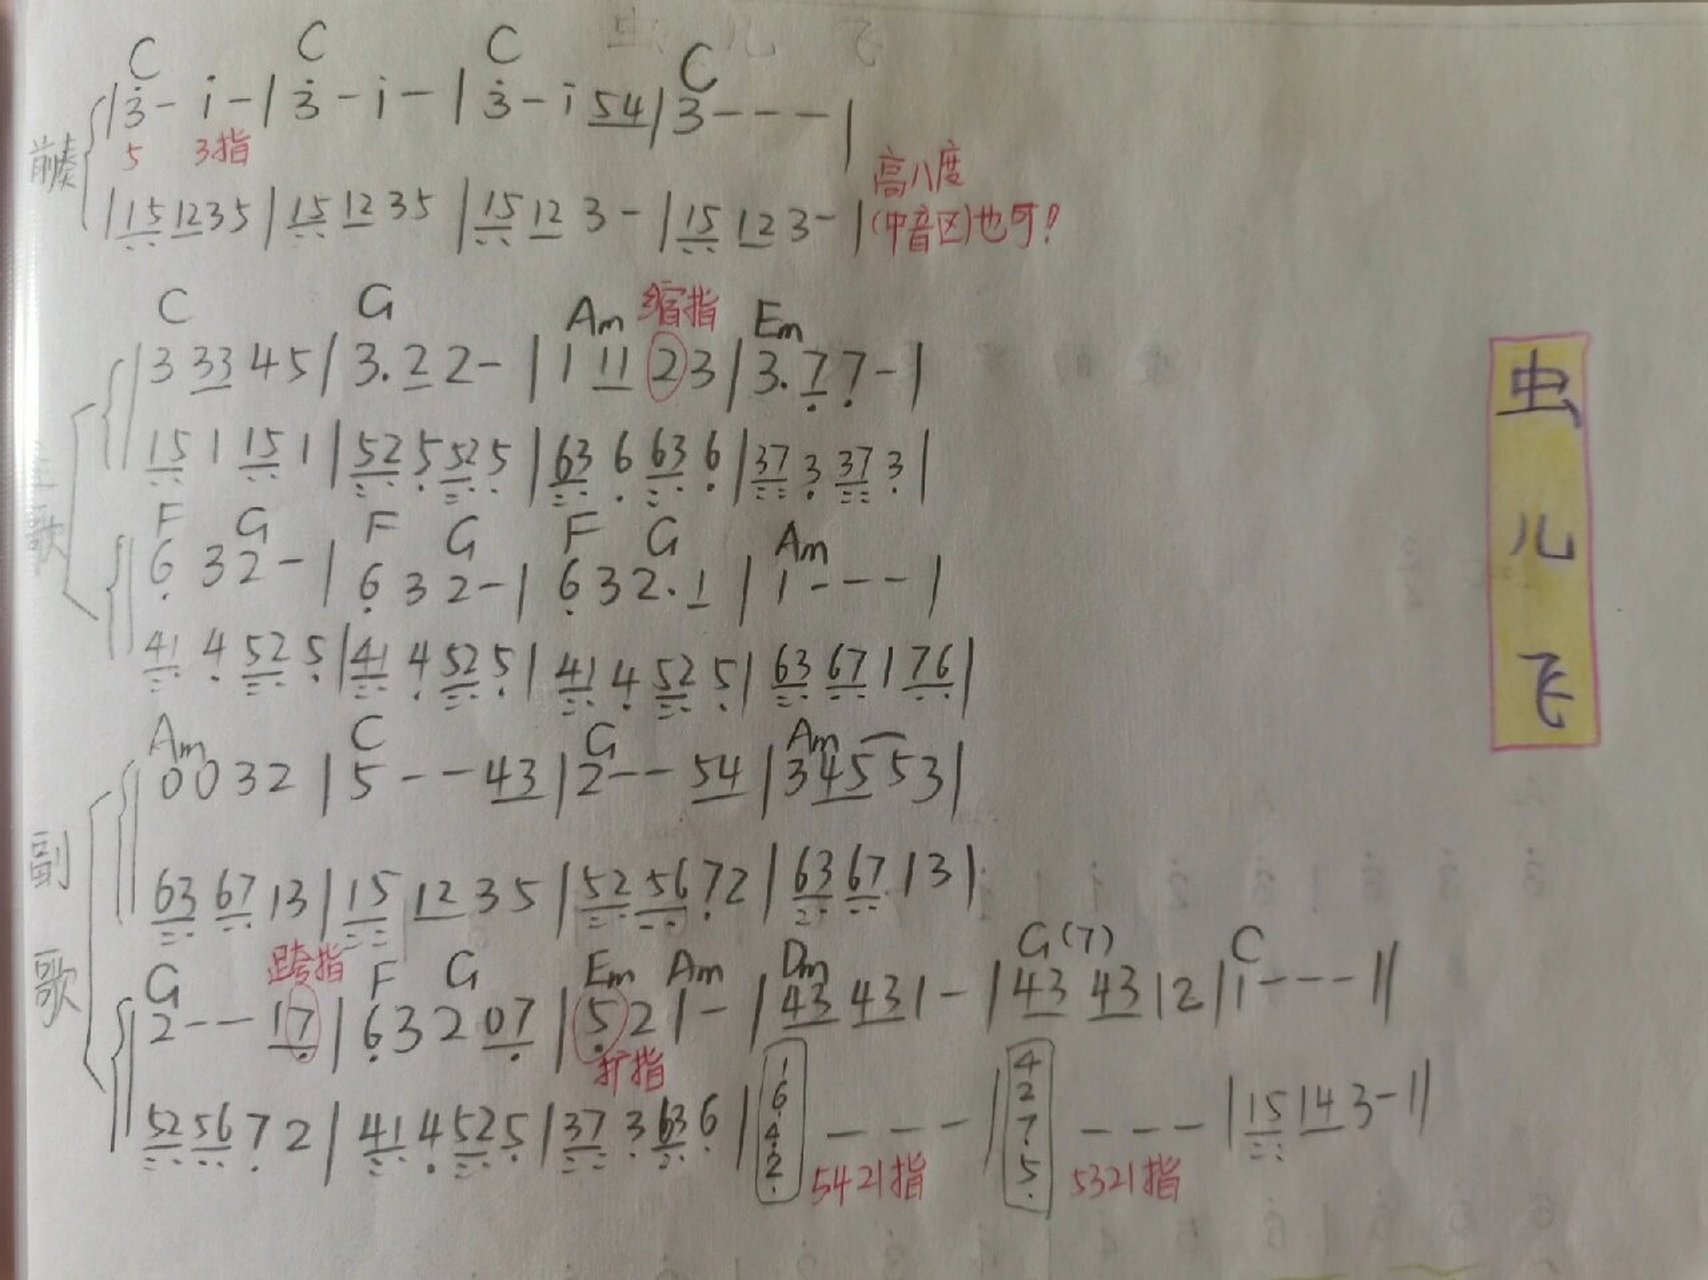 C C C C
前奏 |3̇ - i̇ - | 3̇ - i̇ - | 3̇ - i̇ 54 | 3 - - - |
5 3指
|15 12 35 | 15 12 35 | 15 12 3 - | 15 12 3 - |
高八度
(中音区)也可!
C G Am 缩指 Em
|3 33 45 | 3. 2 2 - | 1 11 2 3 | 3. 7̣ 7̣ - |
15 1 15 1 | 52 5 52 5 | 63 6 63 6 | 37 3 37 3 |
主歌
F G F G F G Am
6̣ 3 2 - | 6̣ 3 2 - | 6̣ 3 2. 1 | 1 - - - |
41 4 52 5 | 41 4 52 5 | 41 4 52 5 | 63 67 1 76 |
Am C G Am
0 0 3 2 | 5 - - 43 | 2 - - 54 | 3 45 5 3 |
副歌
63 67 13 | 15 12 35 | 52 56 7̣2 | 63 67 13 |
G 跨指 F G Em Am Dm G(7) C
2 - - 17̣ | 6̣ 3 2 07̣ | 5̣ 2 1 - | 43 43 1 - | 43 43 1 2 | 1 - - - ||
扩指
52 56 7̣ 2 | 41 4 52 5 | 37 3 63 6 | 1 6 4 2 - - - | 4 2 7 5 - - - | 15 14 3 - ||
5421指 5321指
虫
儿
飞